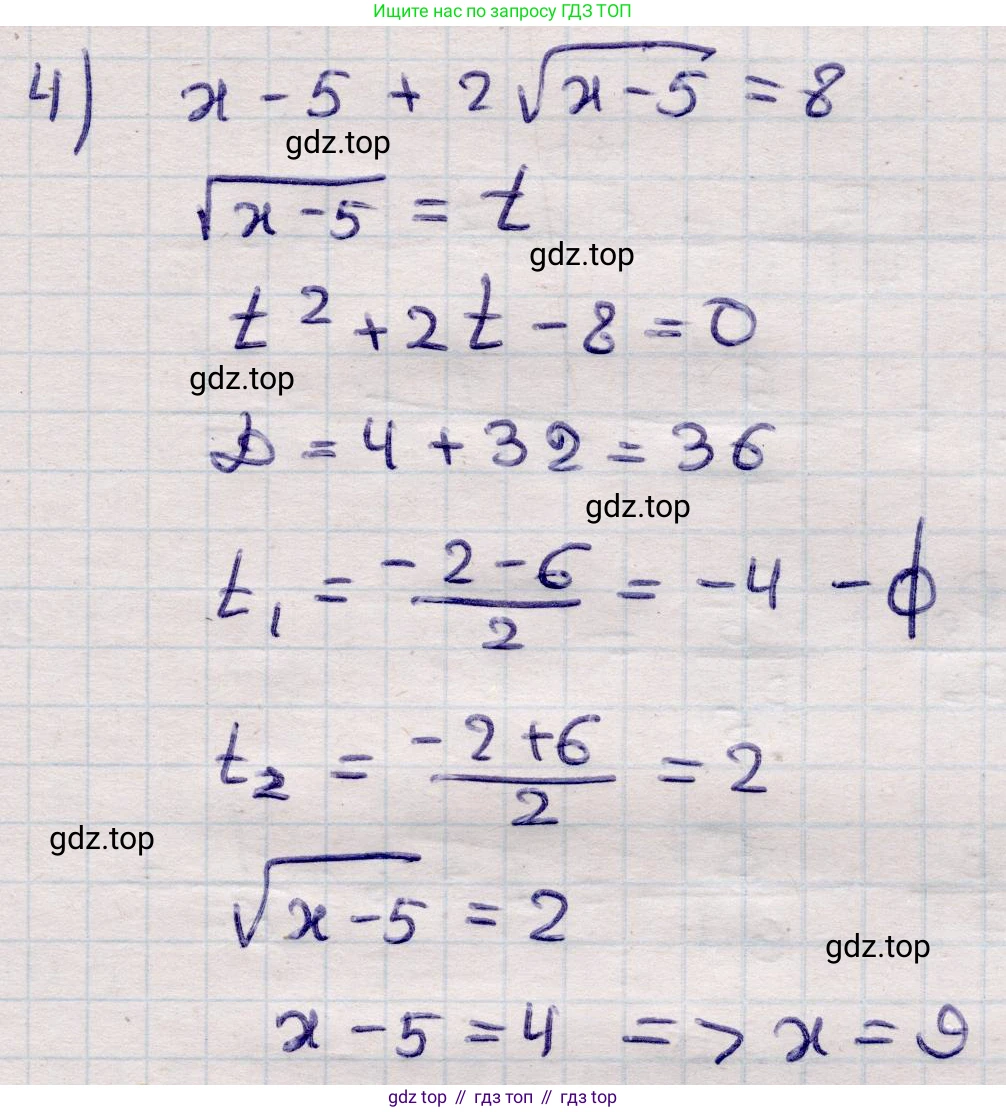 Ищите нас по запросу ГДЗ ТОП
4) x - 5 + 2√(x - 5) = 8
gdz.top
√(x - 5) = t
gdz.top
t² + 2t - 8 = 0
gdz.top
D = 4 + 32 = 36
gdz.top
t₁ = (-2 - 6)/2 = -4 - ϕ
t₂ = (-2 + 6)/2 = 2
gdz.top
√(x - 5) = 2
gdz.top
x - 5 = 4 => x = 9
gdz top // гдз топ // gdz top